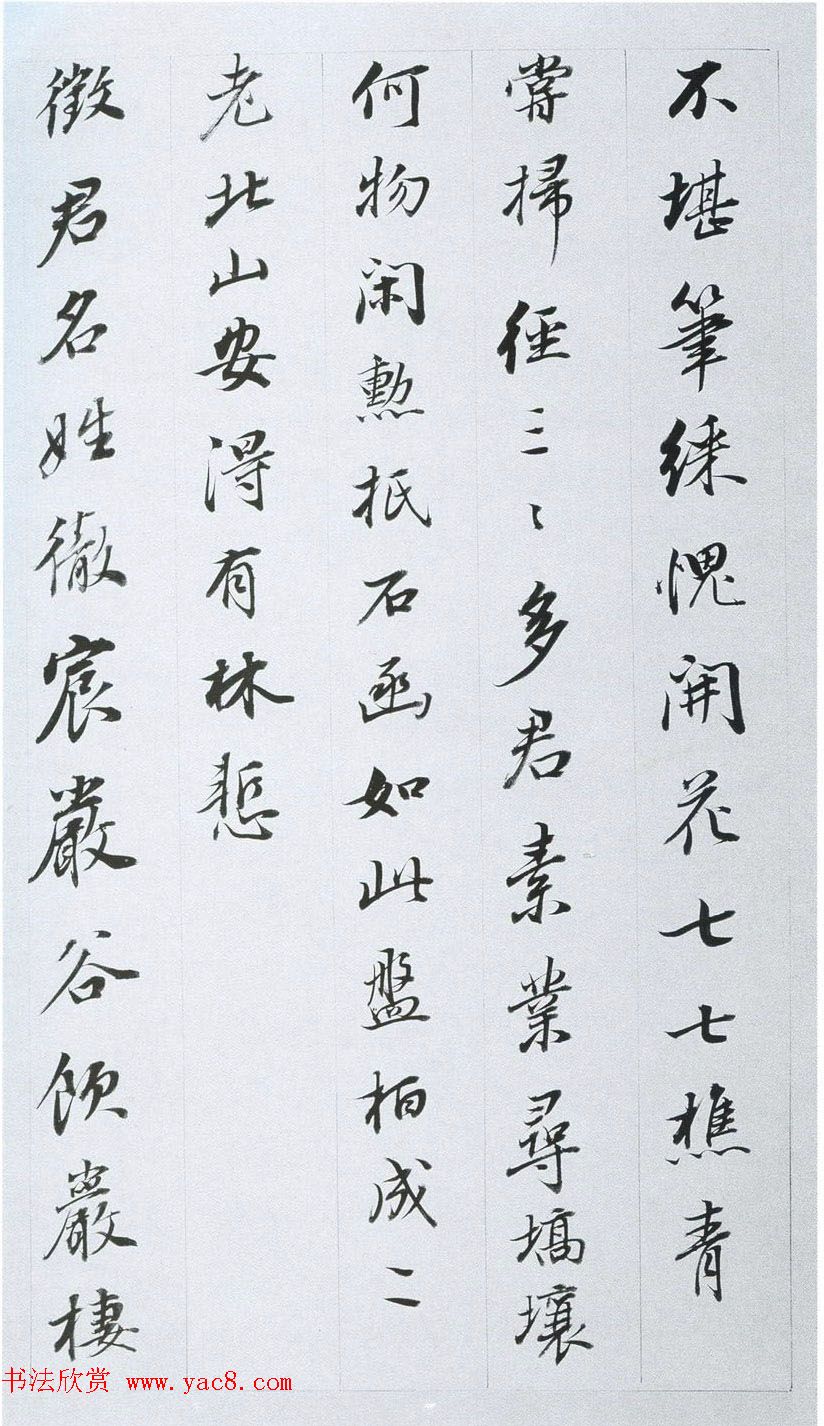 不堪筆綵愧開花七七樵青
嘗掃徑三〻多君素業尋墳壤
何物閑勲抵石函如此盤桓成二
老北山安得有林慙
徵君名姓徹宸嚴谷飲巖棲
书法欣赏 www.yac8.com